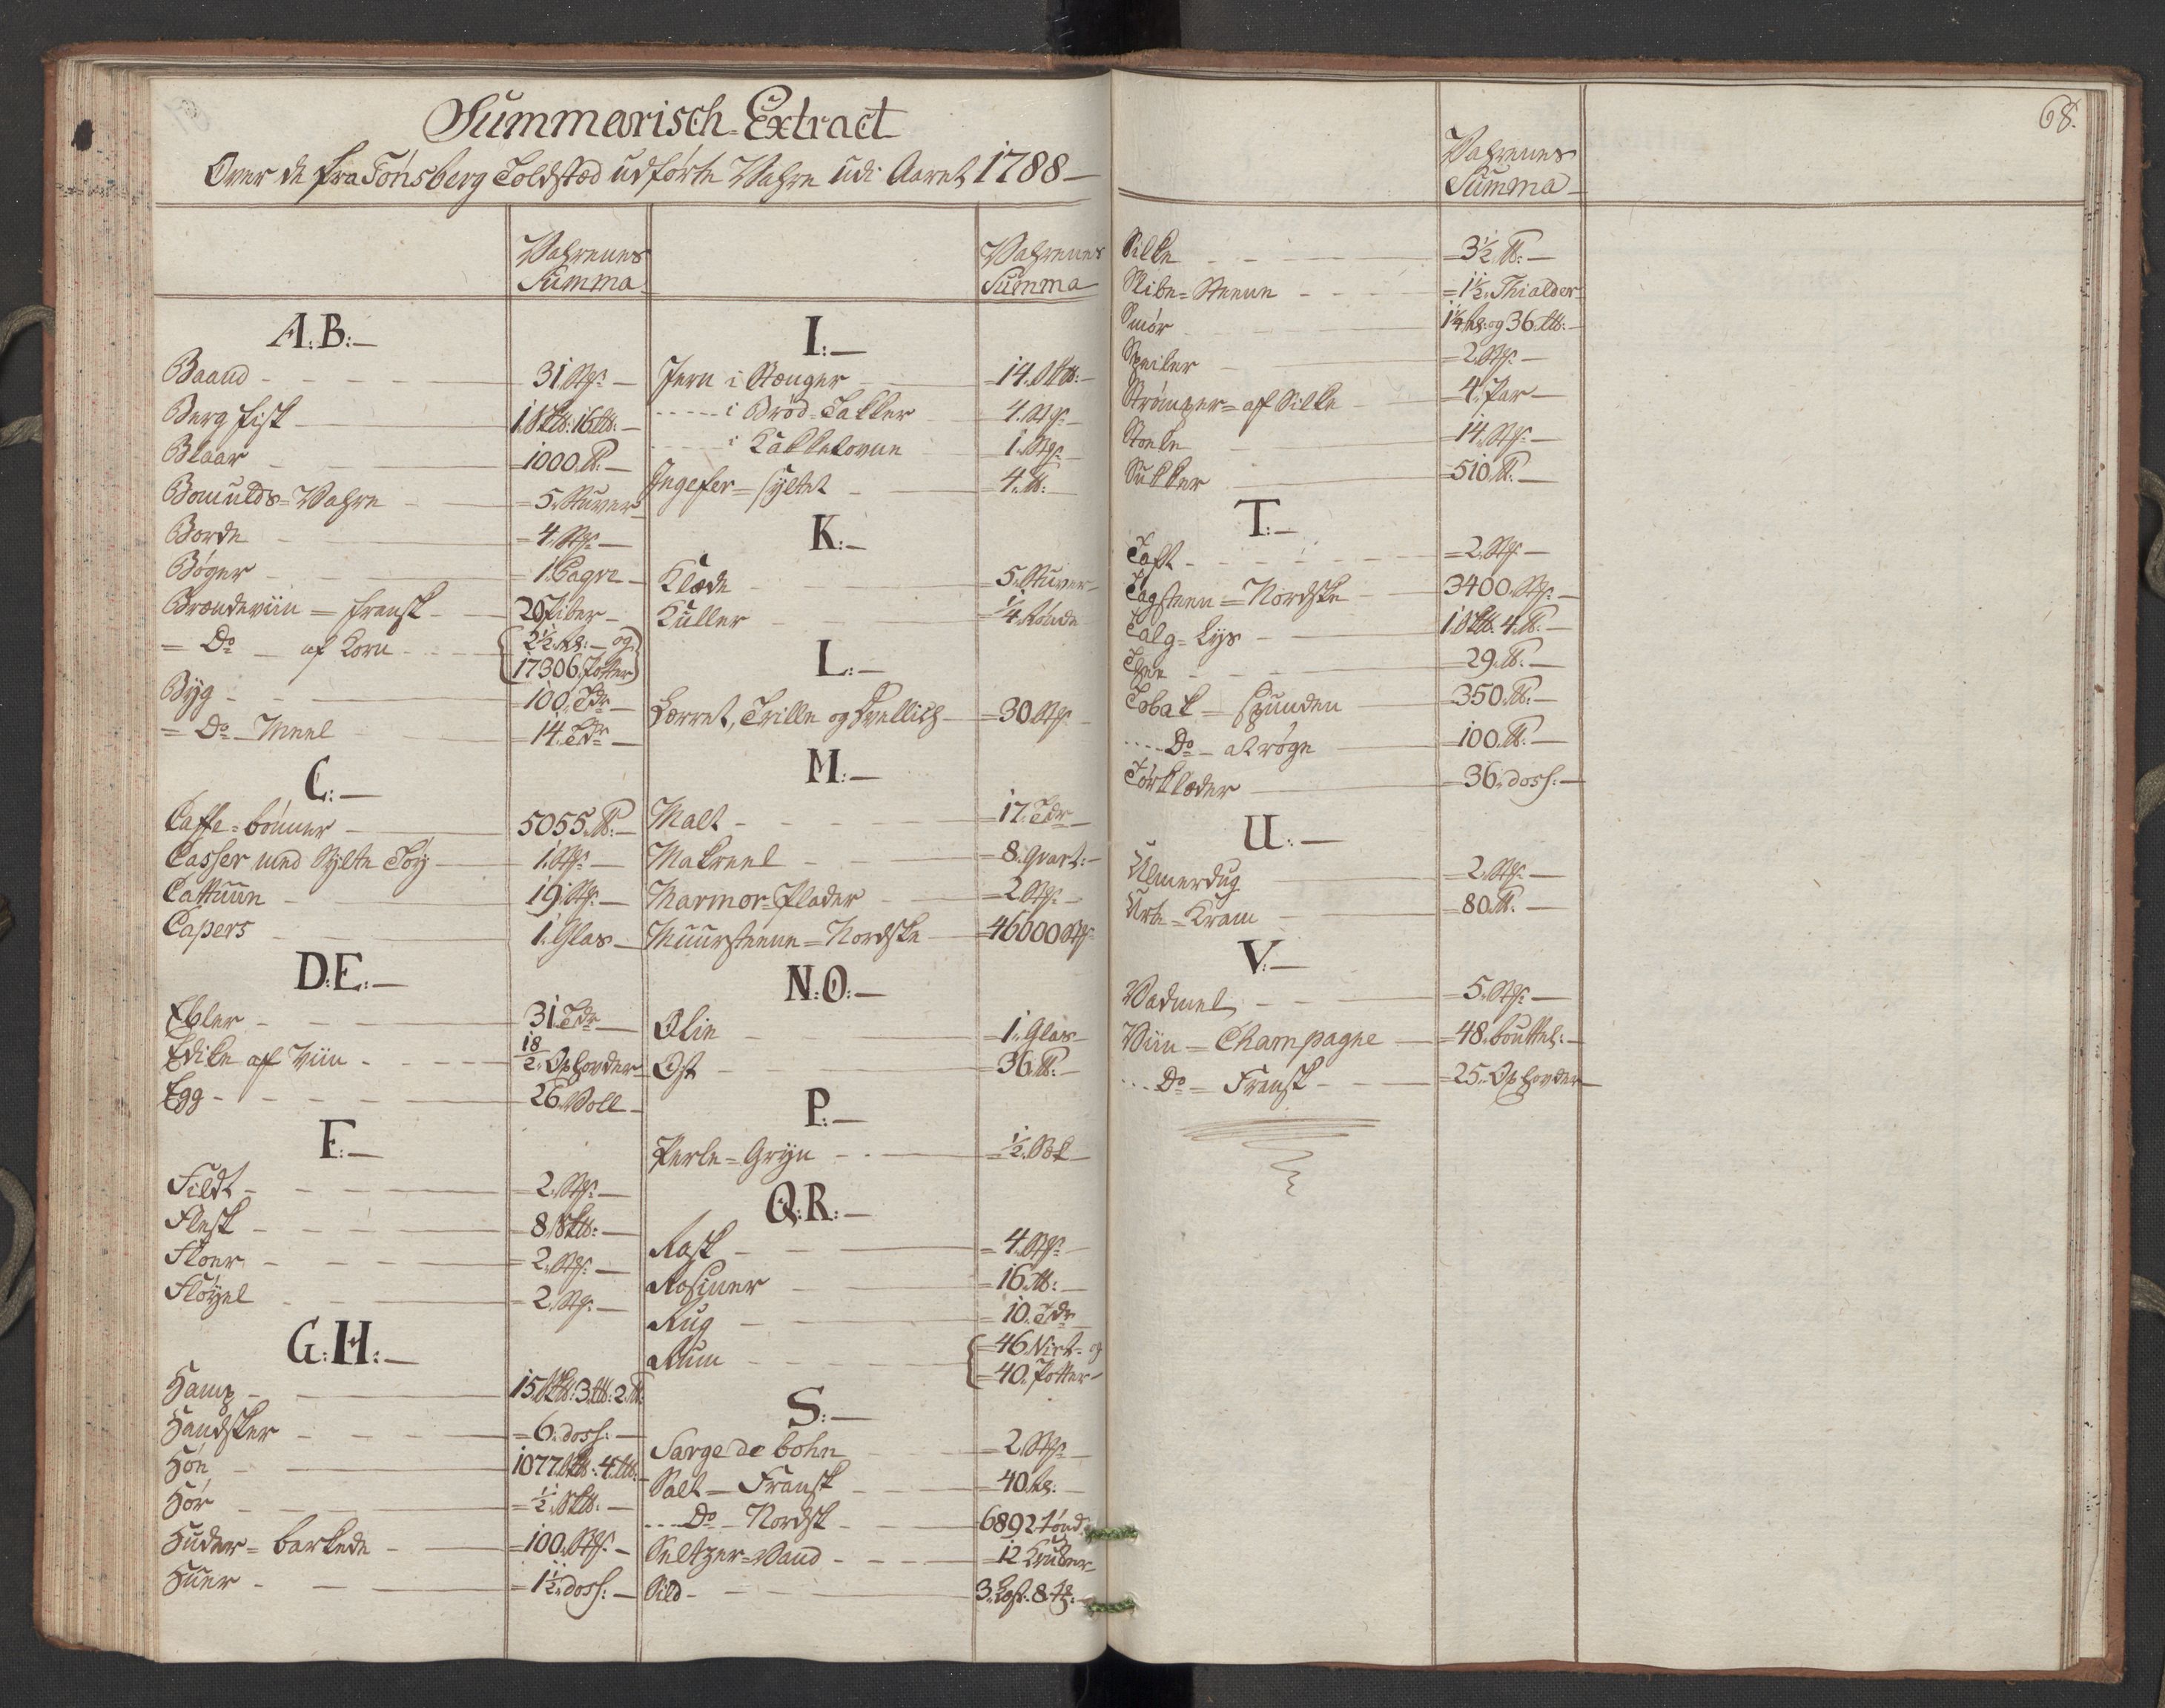 Summarisch-Extract
Over de fra Tönsberg Toldsted udförte Vahre udi Aaret 1788
Vahrenes
Summa
A:B:
Baand 31 Stk:
Berg fisk 1 Sk℔: 16 L℔:
Blaar 1000 ℔:
Bomulds-Vahre 5 Stuver
Borde 4 Stk:
Böger 1 Pagve
Brændeviin = fransk 20 Piber
= Do af Korn 2½ hs: og
17306 Potter
Byg 100 Tdr
= Do Meel 14 Tdr
C:
Caffe-bönner 5055 ℔:
Casser med Sylte Töy 1 Stk:
Cattuun 19 Stk:
Capers 1 Glas
D:E:
Ebler 31 Tdr
Edike af Viin 18/2 Oxhovder
Egg 26 Voll
F:
Fildt 2 Stk:
Flesk 8 Sk℔:
Floer 2 Stk:
Flöyel 2 Stk:
G:H:
Hamp 15 Sk℔: 3 L℔: 2 ℔:
Handsker 6 doss:
Hön 1077 Sk℔: 4 L℔:
Hör ½ Sk℔:
Huder = barkede 100 Stk:
Huer 1½ doss:
Vahrenes
Summa
I:
Jern i Stænger 14 Sk℔:
i Bröd-Takker 4 Stk:
i Kakkelovne 1 Stk:
Ingefer = syltet 4 ℔:
K:
Klæde 5 Stuver
Kuller ¼ Tönde
L:
Lærret, Trille og Drellich 30 Stk:
M:
Malt 17 Tdr
Makreel 8 Qvart:
Marmor-Plader 2 Stk:
Muursteene = Nordske 46000 Stk:
N:O:
Olie 1 Glas
Ost 36 ℔:
P:
Perle-Gryn ½ Sæk
Q:R:
Rask 4 Stk:
Rosiner 16 ℔:
Rug 10 Tdr
Rum 46 Virt: og
40 Potter
S:
Sarge de bohn 2 Stk:
Salt = Fransk 40 hs:
Do Nordsk 6892 tönd:
Seltzer-Vand 12 Krukker
Sild 3 Lest: 8 tr:
68.
Vahrenes
Summa
Silke 3½ ℔:
Slibe-Steene 1½ Thialder
Smör 1¼ hs: og 36 L℔:
Speiler 2 Stk:
Strömper = af Silke 4 Par
Stoele 14 Stk:
Sukker 510 ℔:
T:
Taft 2 Stk:
Tagsteen = Nordske 3400 Stk:
Talg-Lys 1 Sk℔. 4 ℔:
Thee 29 ℔:
Tobak = spunden 350 ℔:
Do at röge 100 ℔:
Törklæder 36 doss:
U:
Ulmerdug 2 Stk:
Urte-Kram 80 ℔:
V:
Vadmel 5 Stk:
Viin = Champagne 48 bouttel:
Do = Fransk 25 Oxhovder